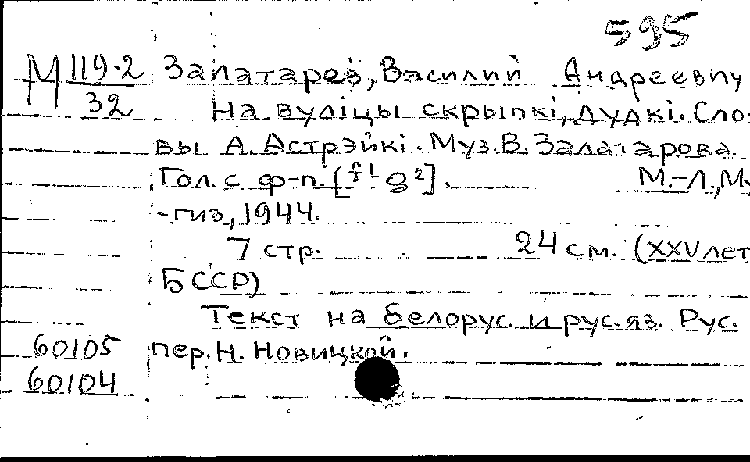 595
М 119-2 Залатарев, Василий Андреевич
32 На вуліцы скрыпкі, дудкі. Сло-
вы А. Астрэйкі. Муз. В. Залатарова.
Гол. с ф-п. [f¹ g²]. М.-Л., Му
-гиз, 1944.
7 стр. 24 см. (XXV лет
БССР)
Текст на белорус. и рус. яз. Рус.
60105 пер. Н. Новицкой.
60104